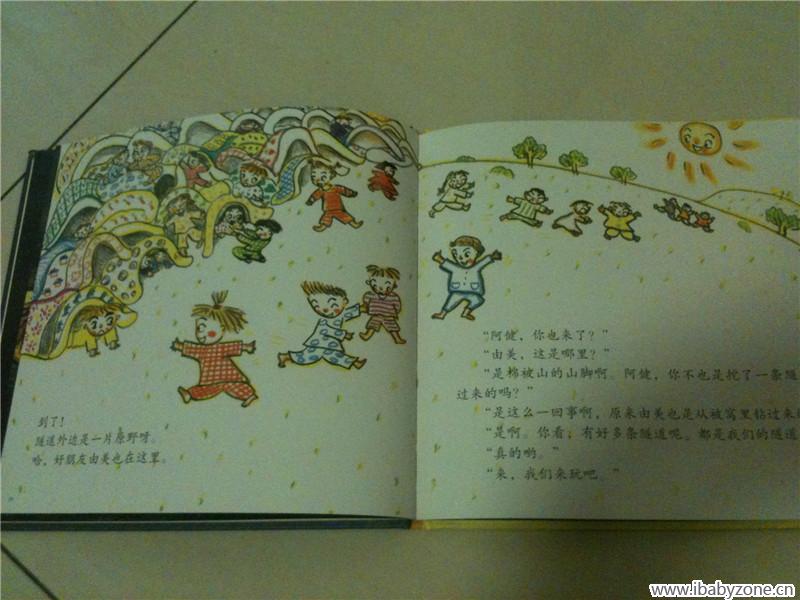 到了！
隧道外边是一片原野呀。
哈，好朋友由美也在这里。
“阿健，你也来了？”
“由美，这是哪里？”
“是棉被山的山脚啊。阿健，你不也是挖了一条隧
过来的吗？”
“是这么一回事啊，原来由美也是从被窝里钻过来
“是啊。你看，有好多条隧道呢。都是我们的隧道
“真的哟。”
“来，我们来玩吧。”
www.ibabyzone.cn